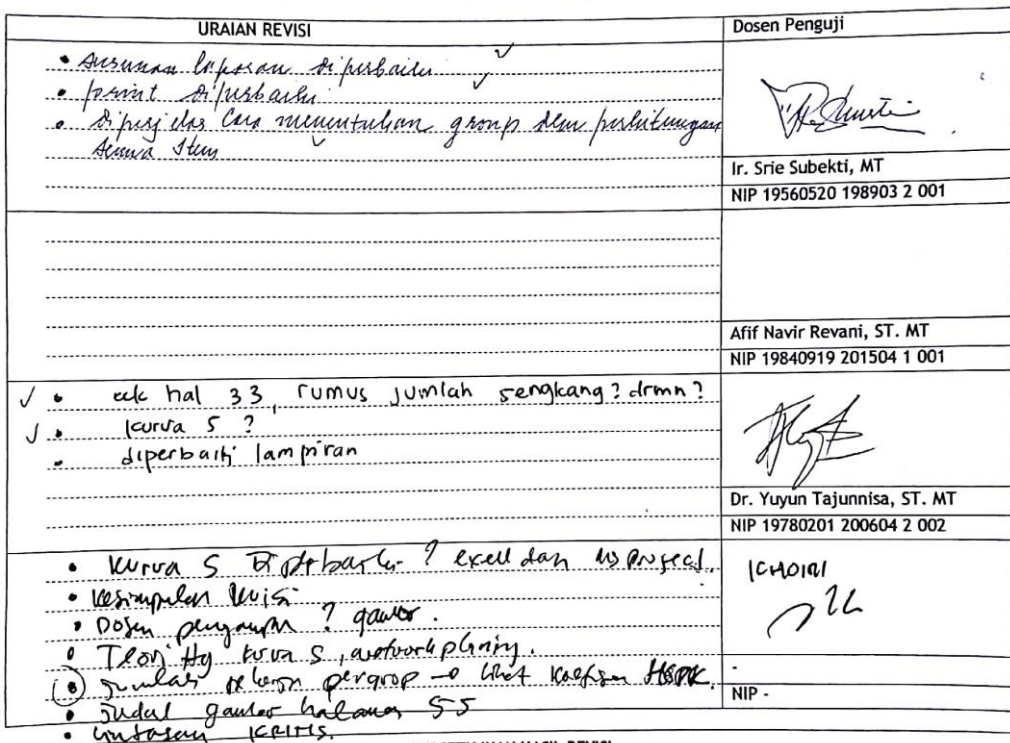 URAIAN REVISI
Dosen Penguji
• susunan laporan diperbaiki ✓
• print diperbaiki ✓
• diperjelas cara menentukan group dan perhitungan
semua item ✓
Ir. Srie Subekti, MT
NIP 19560520 198903 2 001
Afif Navir Revani, ST. MT
NIP 19840919 201504 1 001
✓ • cek hal 33, rumus jumlah sengkang? drmn?
✓ • kurva S ?
• diperbaiki lampiran
Dr. Yuyun Tajunnisa, ST. MT
NIP 19780201 200604 2 002
• Kurva S Diperbaiki ? excell dan Ms Project.
• Kesimpulan Revisi
• Dosen ? gambar.
• Teori ttg kurva S, network planning.
• Jumlah pekerja pergrop → lihat koefisien HSPK.
• Judul gambar halaman 55
• Lintasan KRITIS.
ICHOIRI
-
NIP -